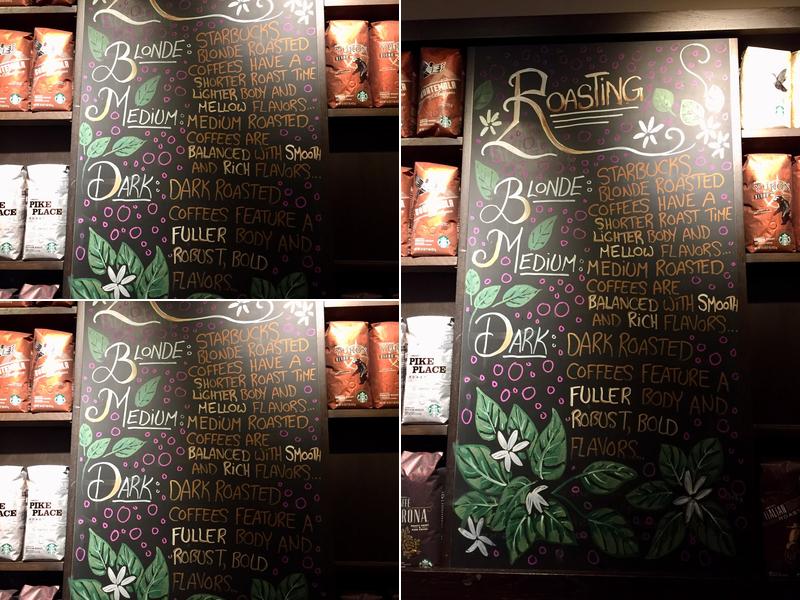 BLONDE:
STARBUCKS
BLONDE ROASTED
COFFEES HAVE A
SHORTER ROAST TIME
LIGHTER BODY AND
MELLOW FLAVORS...
MEDIUM:
MEDIUM ROASTED
COFFEES ARE
BALANCED WITH SMOOTH
AND RICH FLAVORS...
DARK:
DARK ROASTED
COFFEES FEATURE A
FULLER BODY AND
ROBUST, BOLD
FLAVORS...
PIKE
PLACE
BLONDE:
STARBUCKS
BLONDE ROASTED
COFFEES HAVE A
SHORTER ROAST TIME
LIGHTER BODY AND
MELLOW FLAVORS...
MEDIUM:
MEDIUM ROASTED
COFFEES ARE
BALANCED WITH SMOOTH
AND RICH FLAVORS...
DARK:
DARK ROASTED
COFFEES FEATURE A
FULLER BODY AND
ROBUST, BOLD
FLAVORS...
PIKE
PLACE
ROASTING
BLONDE:
STARBUCKS
BLONDE ROASTED
COFFEES HAVE A
SHORTER ROAST TIME
LIGHTER BODY AND
MELLOW FLAVORS...
MEDIUM:
MEDIUM ROASTED
COFFEES ARE
BALANCED WITH SMOOTH
AND RICH FLAVORS...
DARK:
DARK ROASTED
COFFEES FEATURE A
FULLER BODY AND
ROBUST, BOLD
FLAVORS...
PIKE
PLACE